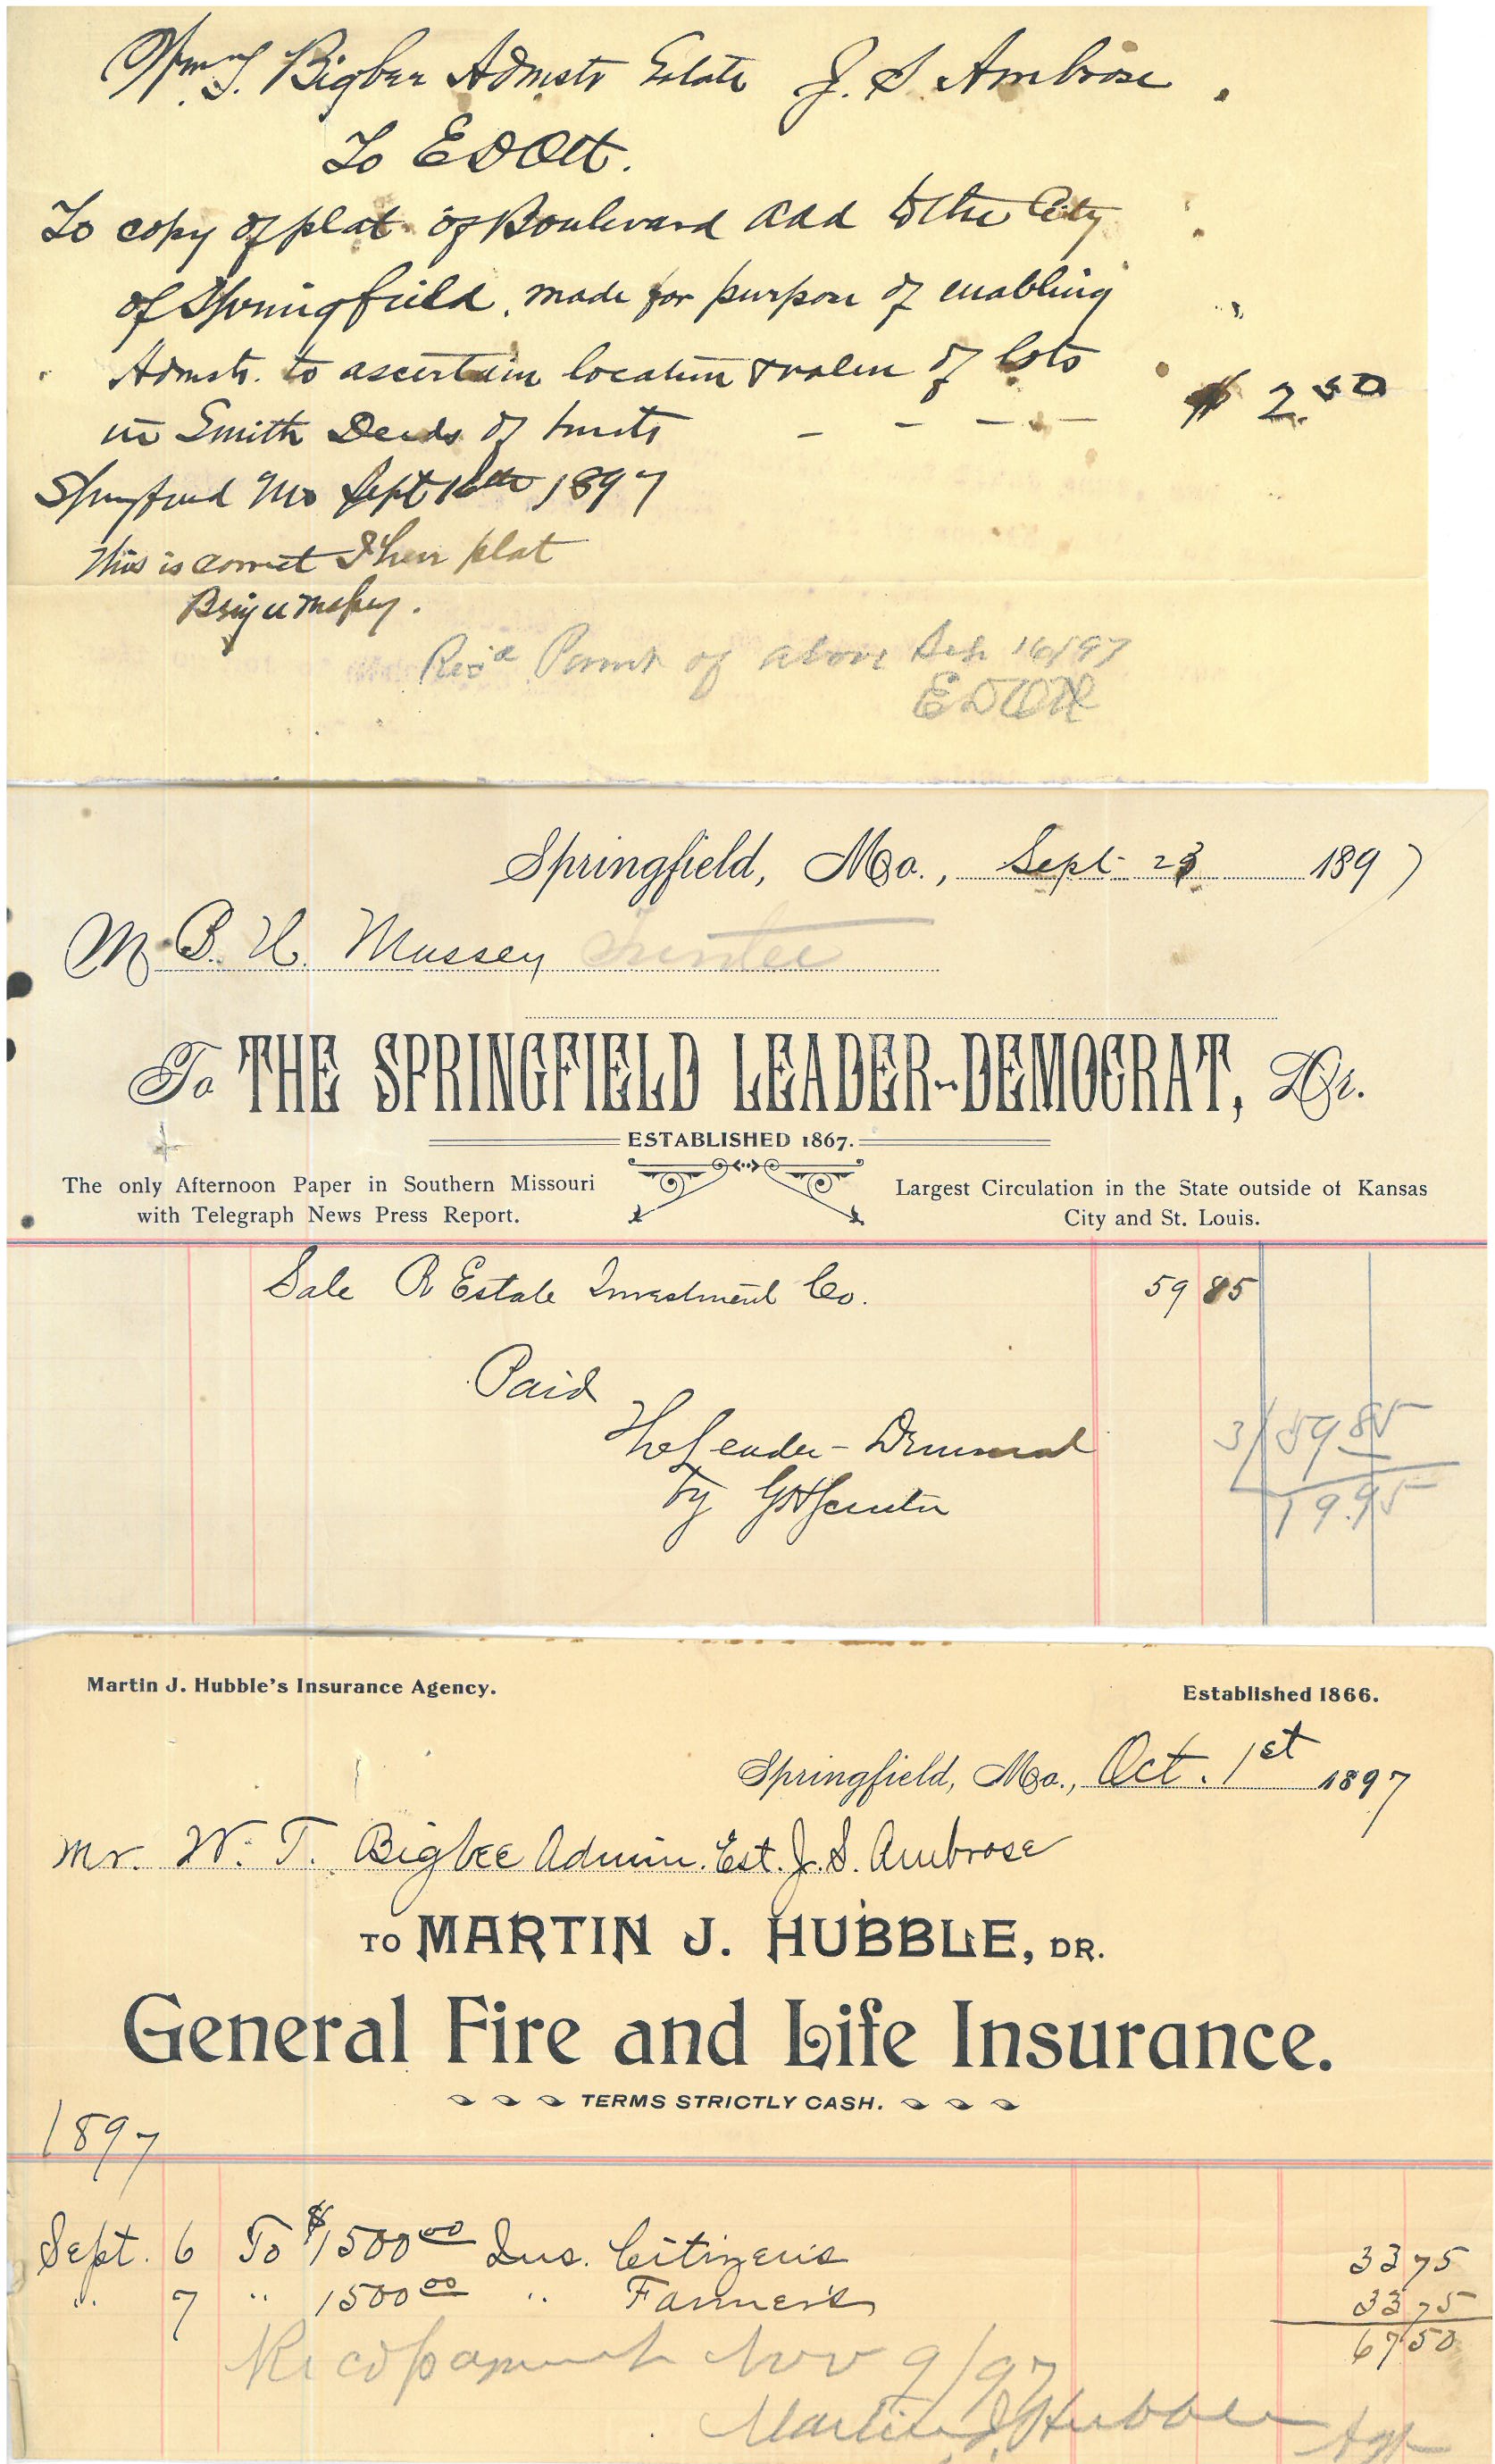 Wm T. Bigbee Admstr Estate J. S. Ambrose.
To E D Ott.
To copy of plat of Boulevard Add to the City
of Springfield, made for purpose of enabling
Admstr. to ascertain location & value of lots
in Smith Deeds of trusts - - - - $ 2.50
Springfield Mo Sept 16th 1897
This is correct I have plat
Rec'd Paymt of above Sep 16/97
E D Ott
Springfield, Mo., Sept 23 1897
M B. U. Massey Trustee
To THE SPRINGFIELD LEADER-DEMOCRAT, Dr.
ESTABLISHED 1867.
The only Afternoon Paper in Southern Missouri
with Telegraph News Press Report.
Largest Circulation in the State outside of Kansas
City and St. Louis.
Sale R Estate Investment Co. 59 85
Paid
The Leader-Democrat
by
3/59 85
19.95
Martin J. Hubble's Insurance Agency.
Established 1866.
Springfield, Mo., Oct. 1st 1897
Mr. W. T. Bigbee Admin. Est. J. S. Ambrose
TO MARTIN J. HUBBLE, DR.
General Fire and Life Insurance.
TERMS STRICTLY CASH.
1897
Sept. 6 To $1500 00 Ins. Citizens 33 75
" 7 " 1500 00 " Farmers 33 75
67 50
Recd payment Nov 9/97
Martin J Hubble Agt